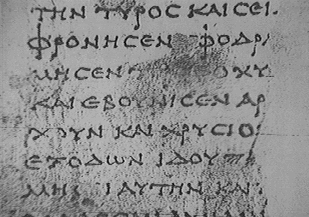 ΤΗΝ ΤΥΡΟϹ ΚΑΙ ϹΕΙ
ΦΡΟΝΗϹΕΝ ϹΦΟΔΡ
ΜΗϹΕΝ ΟΧΥ
ΚΑΙ ΕΒΟΥΝΙϹΕΝ ΑΡ
ΧΟΥΝ ΚΑΙ ΧΡΥϹΙΟ
ΕΞΟΔΩΝ ΙΔΟΥ
ΑΥΤΗΝ ΚΑΙ